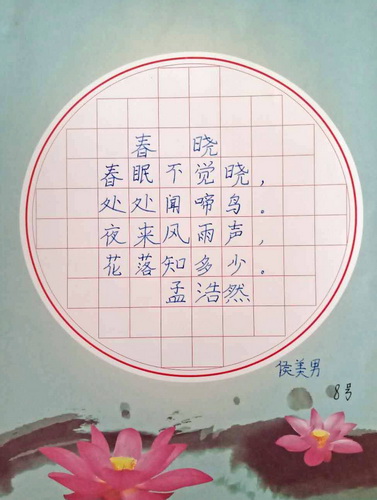 春 晓
春眠不觉晓，
处处闻啼鸟。
夜来风雨声，
花落知多少。
孟浩然
侯美男
8号